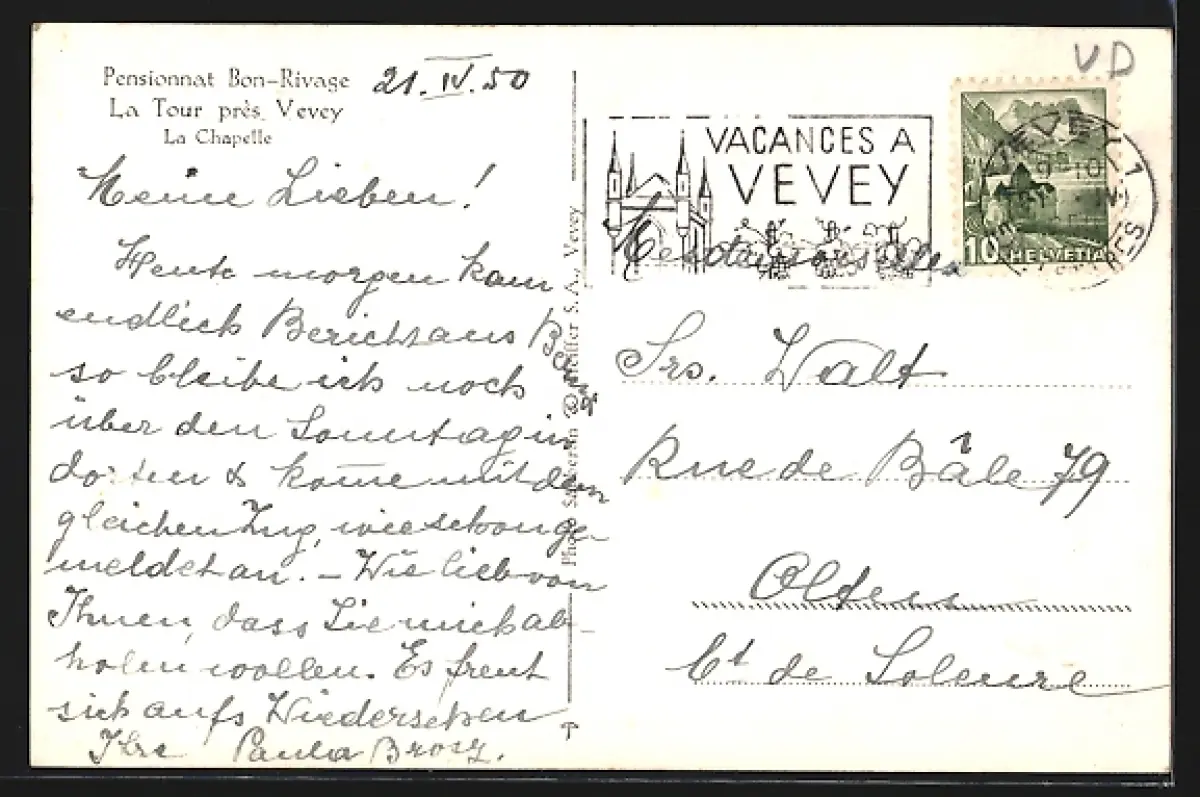 Pensionnat Bon-Rivage
La Tour près Vevey
La Chapelle
21.IV.50
Meine Lieben!
Heute morgen kam
endlich Bericht aus Bern
so bleibe ich noch
über den Sonntag in
dorten & kome mit dem
gleichen Zug, wie schon ge-
meldet an. – Wie lieb von
Ihnen, dass Sie mich ab-
holen wollen. Es freut
sich aufs Wiedersehen
Ihre Paula Brosy.
Photo S. A. Vevey
VD
VACANCES A
VEVEY
VEVEY 1
10
HELVETIA
Mesdemoiselles
Srs. Walt
Rue de Bâle 79
Olten
Ct de Soleure